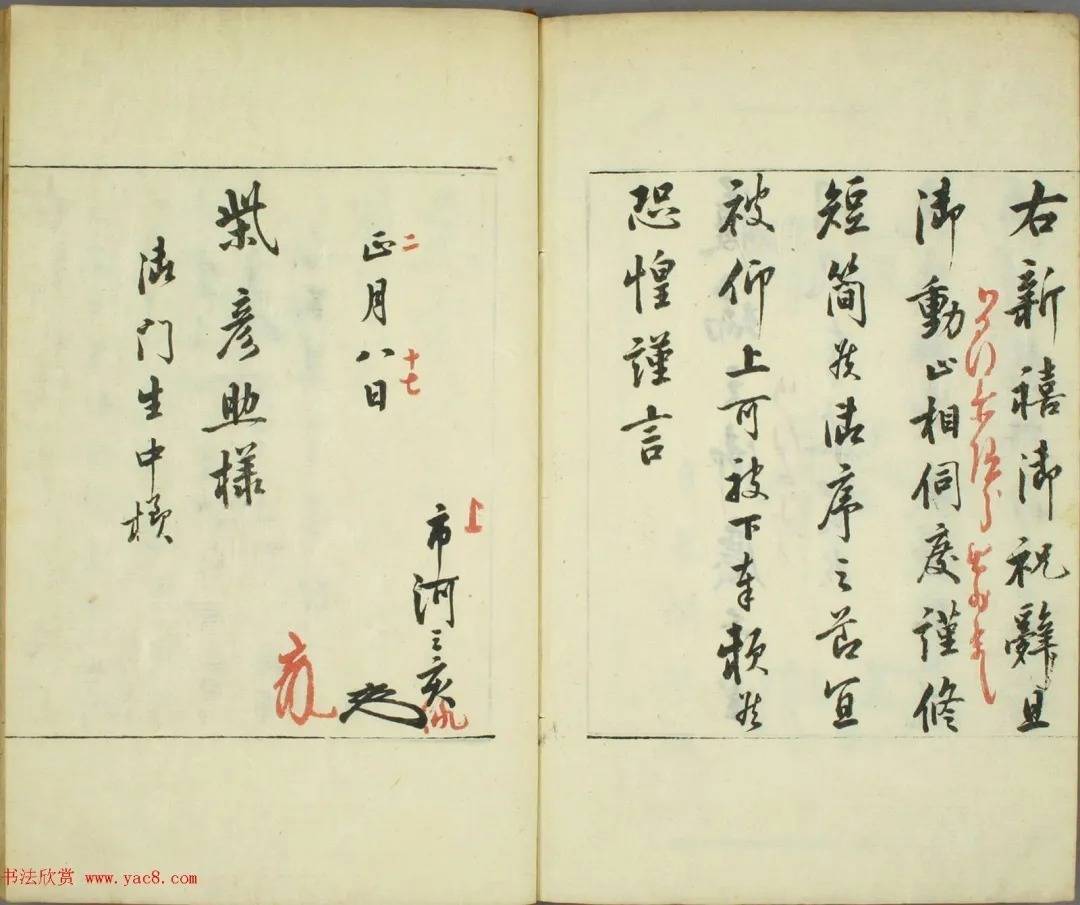 右新禧御祝辞且
御動止相伺度謹修
短簡候御序之節宜
被仰上可被下奉頼候
恐惶謹言
二
正月八日
十七
市河三亥
柴彦助様
御門生中様
书法欣赏 www.yac8.com